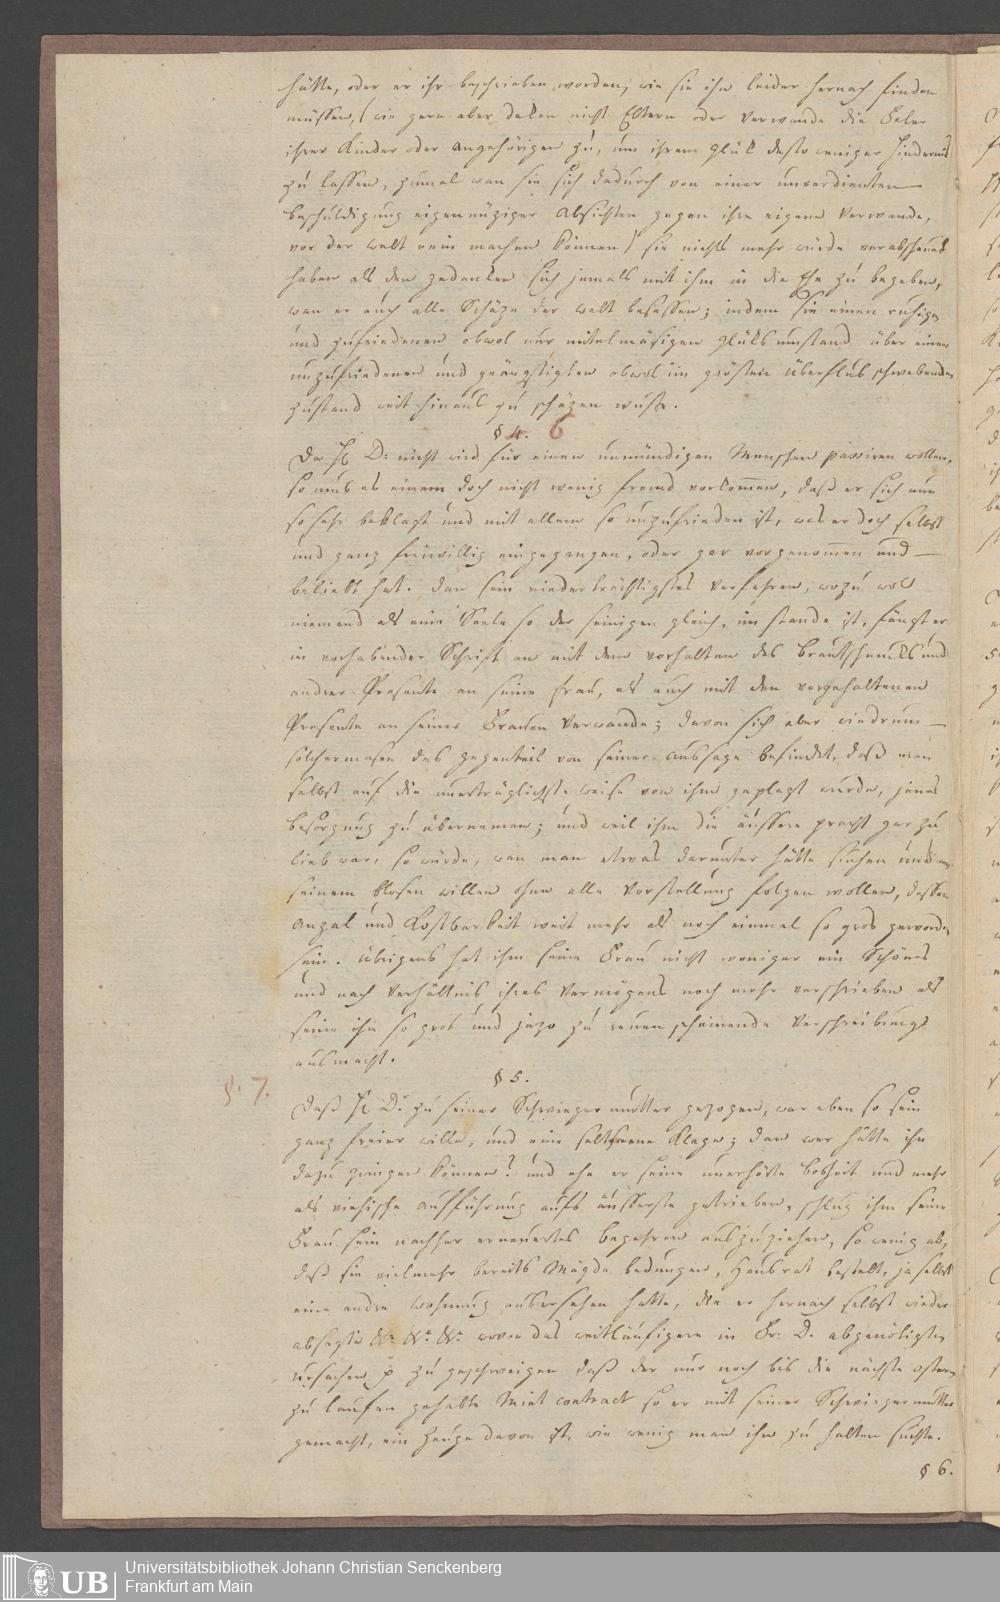 hätte, oder er ihr beschrieben worden, wie sie ihn leider hernach finden
müssen, (wie gern aber deken nicht Eltern oder Verwande die Feler
ihrer Kinder oder angehörigen zu, um ihrem Glük desto weniger Hindernis
zu lassen, zumal wan sie sich dadurch von einer unverdienten
beschuldigung eigennüziger absichten gegen ihre eigene Verwande,
vor der welt rein machen können) sie nichts mehr würde verabscheuet
haben als den gedanken sich jemals mit ihm in die Ehe zu begeben,
wan er auch alle Schäze der welt besässen; indem sie einen ruhigen
und zufriedenen obwol nur mittelmäsigen Glüksumstand über einen
unzufriedenen und geängstigten obwol im grösten überflus schwebenden
zustand weit hinaus zu schäzen wuste.
§ 4. 6
Da H D: nicht wird für einen unmündigen Menschen passiren wollen,
so mus es einem doch nicht wenig fremd vorkommen, daß er sich nun
so sehr beklagt und mit allem so unzufrieden ist, was er doch selbst
und ganz freiwillig eingegangen, oder gar vorgenommen und
beliebt hat. dan sein niederträchtigstes Verfahren, wozu wol
niemand als eine Seele so der seinigen gleich, im stande ist, fängt er
in vorhabender Schrift an mit dem vorhalten des brautschmuks und
andrer Presente an seine Frau, als auch mit den vorgehaltenen
Presente an seiner Frauen Verwande; davon sich aber wiedrum
solchermasen das gegenteil von seiner aussage befindet, daß man
selbst auf die unerträglichste weise von ihm geplagt wurde, jenes
besorgung zu übernemen; und weil ihm die äussere pracht gar zu
lieb war, so würde, wan man etwas darunter hätte suchen und
seinem blosen willen ohne alle Vorstellung folgen wollen, dessen
anzal und Kostbarkeit weit mehr als noch einmal so gros geworden
sein. übrigens hat ihm seine Frau nicht weniger ein Schönes
und nach Verhältnis ihres Vermögens noch mehr verschrieben als
seine ihn so gros und jezo zu reuen scheinende Verschreibung
ausmacht.
§ 5.
§. 7.
Daß H D. zu seiner Schwiegermutter gezogen, war eben so sein
ganz freier wille, und eine seltsame Klage; dan wer hätte ihn
dazu zwingen können? und ehe er seine unerhörte bosheit und mehr
als viehische aufführung aufs äusserste getrieben, schlug ihm seine
Frau sein nachher erneuertes begehren auszuziehen, so wenig ab,
daß sie vielmehr bereits Mägde bedungen, Hausrat bestelt, ja selbst
eine andre wohnung ausersehen hatte, die er hernach selbst wieder
absagte &c. &c. &c. wovon das weitläufigere in Fr. D. abgenötigten
ursachen zu geschweigen daß der nur noch bis die nächste ostern
zu laufen gehabte Miet contract so er mit seiner Schwiegermutter
gemacht, ein Zeuge davon ist, wie wenig man ihn zu halten suchte.
§ 6.
UB
Universitätsbibliothek Johann Christian Senckenberg
Frankfurt am Main